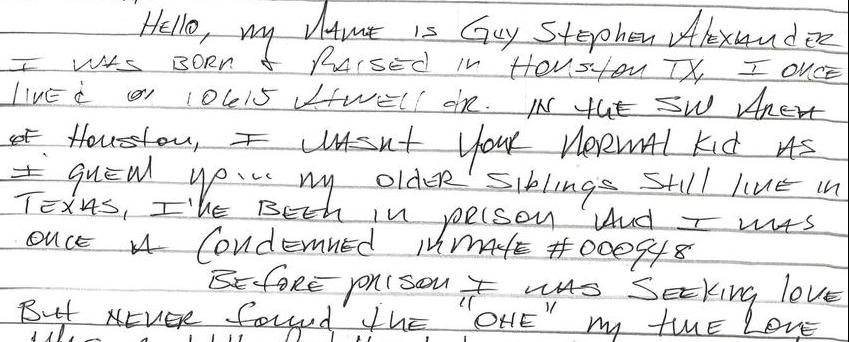 Hello, my name is Guy Stephen Alexander
I was born & raised in Houston TX, I once
lived on 10615 Atwell dr. in the SW Area
of Houston, I wasnt your normal kid as
I grew up... my older siblings still live in
Texas, I've been in prison and I was
once a condemned inmate #000948
Before prison I was seeking love
But never found the "one" my true love